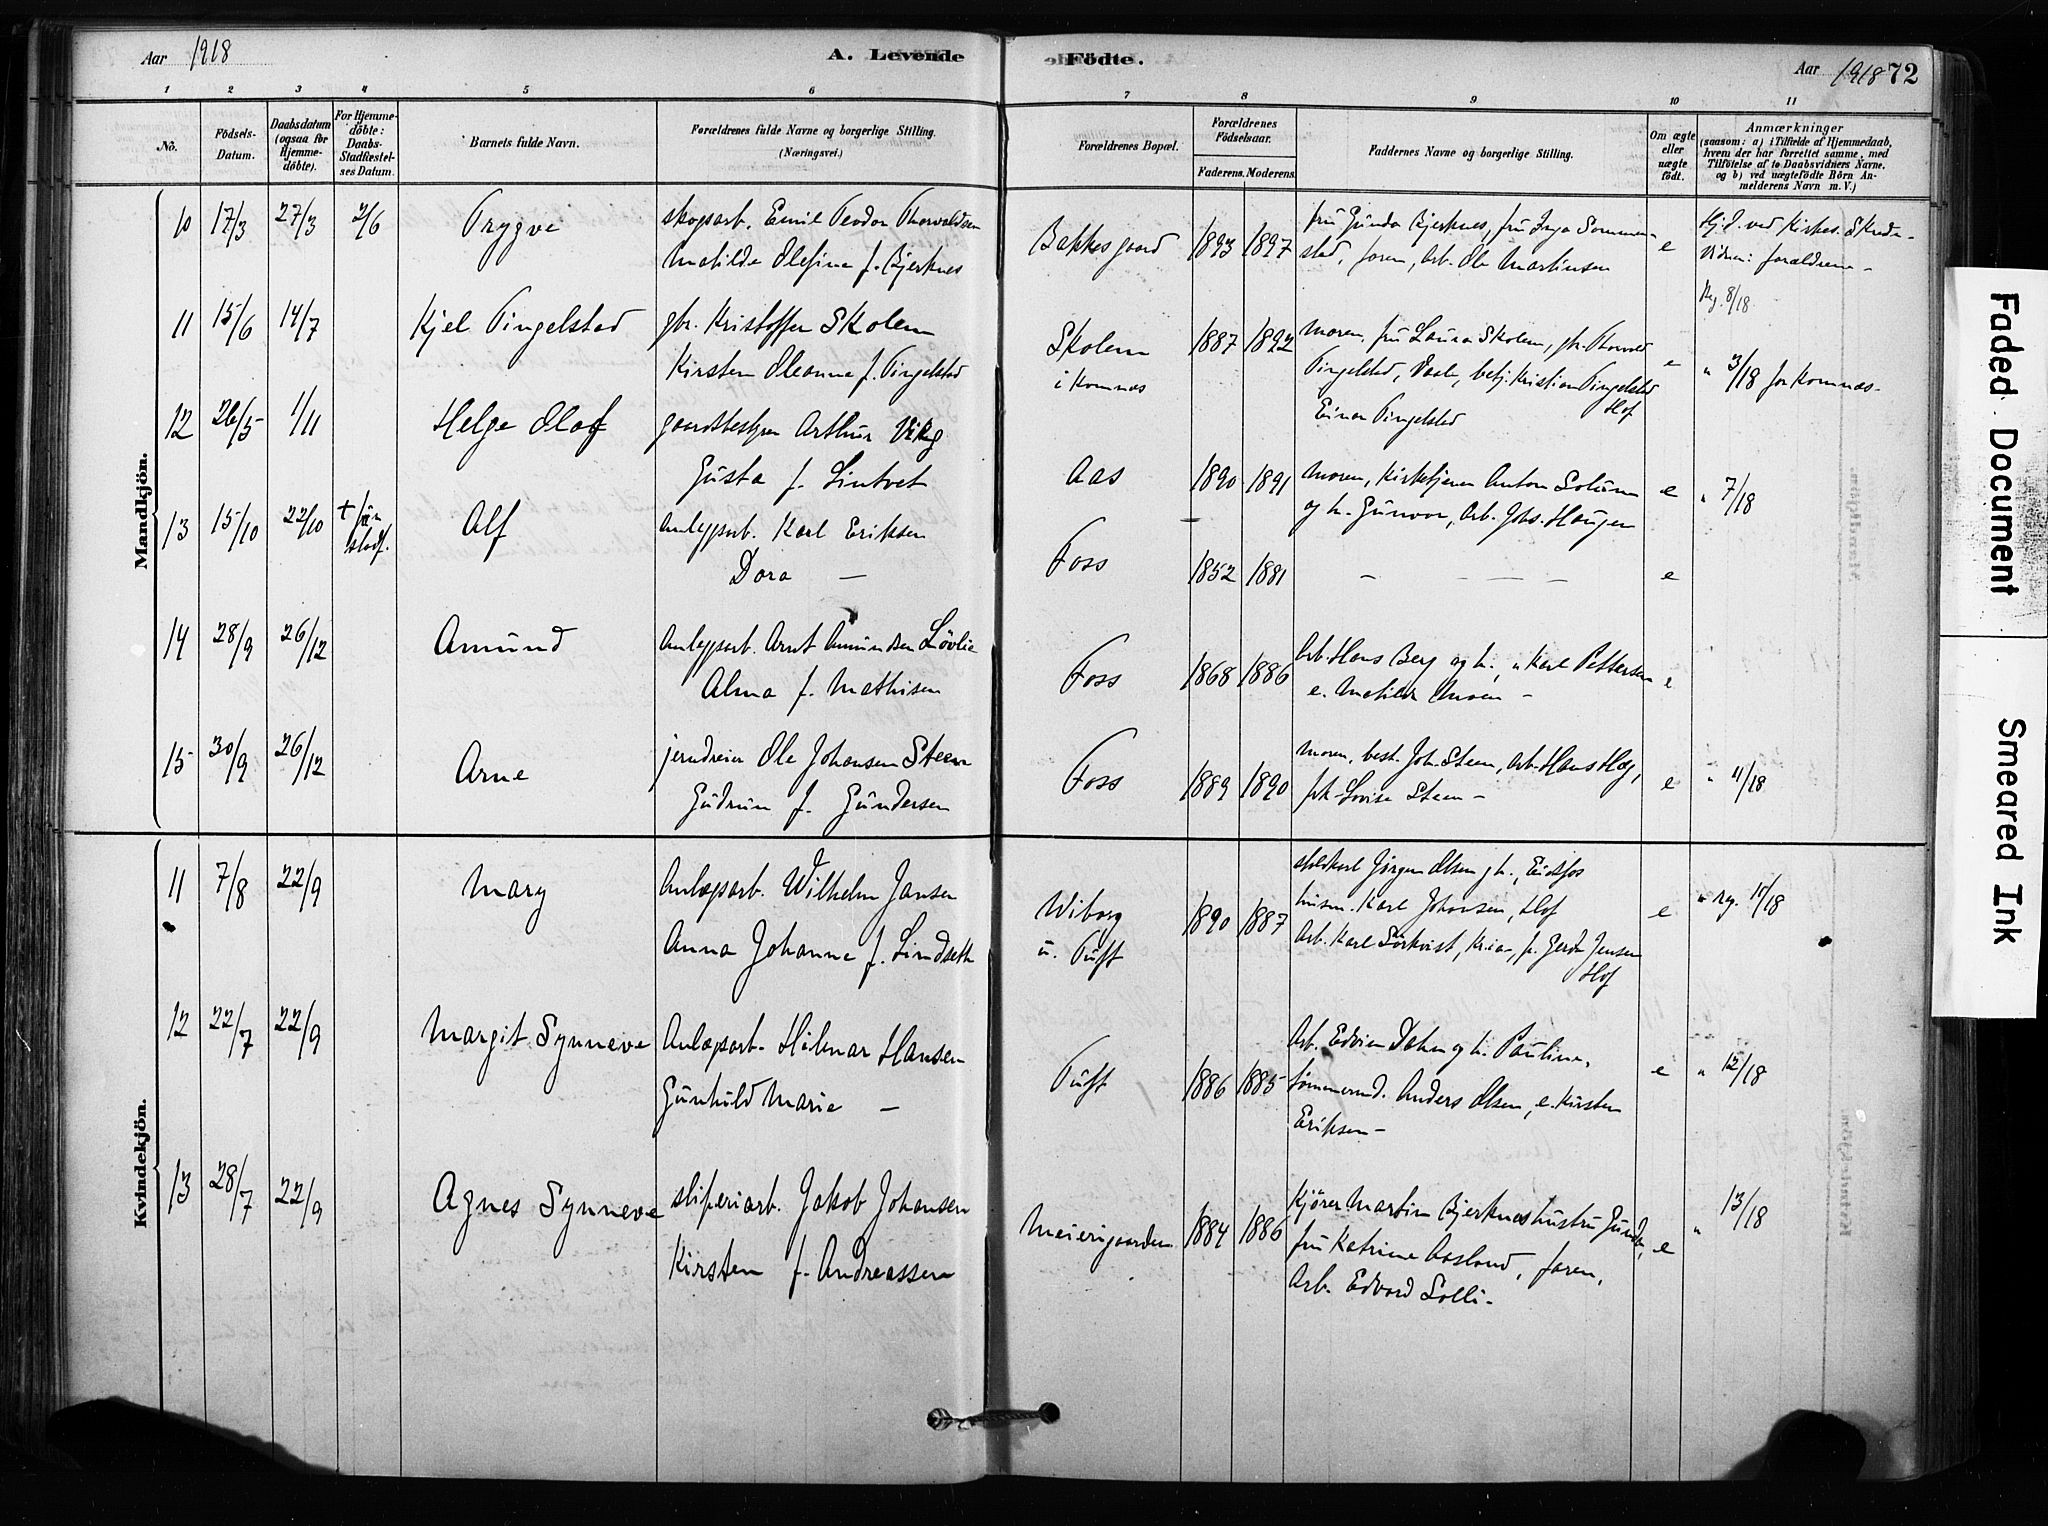 Aar 1918
A. Levende
Födte.
Aar 1918 72
1 2 3 4 5 6 7 8 9 10 11
No.
Födsels-
Datum.
Daabsdatum
(ogsaa for
Hjemme-
döbte).
For Hjemme-
döbte:
Daabs-
Stadfæstel-
ses Datum.
Barnets fulde Navn.
Forældrenes fulde Navne og borgerlige Stilling.
(Næringsvei.)
Forældrenes Bopæl.
Forældrenes
Födselsaar.
Faderens. Moderens.
Faddernes Navne og borgerlige Stilling.
Om ægte
eller
uægte
födt.
Anmærkninger
(saasom: a) i Tilfælde af Hjemmedaab,
hvem der har forrettet samme, med
Tilföielse af to Daabsvidners Navne.
og b) ved uægtefödte Börn An-
melderens Navn m. V.)
Mandkjön.
10 17/3 27/3 2/6 Trygve skogsarb. Emil Teodor Thorvaldsen
Matilde Olefine f. Bjerknes
Bakkegaard 1893 1897 fru Gunda Bjerknes, fru Inga Sommer-
stad, faren, Arb. Ole Martinsen e
Hj.d. ved Kirkes.
Vidner: forældrene -
Reg. 8/18
11 15/6 14/7 Kjel Tingelstad gbr. Kristoffer Skolem
Kirsten Oleanna f. Tingelstad
Skolem
i Komnes
1887 1892 moren, fru Laura Skolem, gbr. Thorvald
Tingelstad, Vaale, betj. Kristian Tingelstad
Hof
Einar Tingelstad
e " 3/18 for Komnes.
12 26/5 1/11 Helge Olaf gaardbestyrer Arthur
Gusta f. Lintvet
Aas 1890 1891 moren, Kirketjener Anton Solum
og h. Gunvor, Arb. Johs. Haugen e " 7/18
13 15/10 22/10 + før
stadf.
Alf Anlegsarb. Karl Eriksen
Dora —
Foss 1852 1881 - - - - e
14 28/9 26/12 Amund Anlegsarb. Arnt Amundsen Lövlie
Alma f. Mathisen
Foss 1868 1886 Arb. Hans Berg og h., " Karl Pettersen
e. Matilde -
e
15 30/9 26/12 Arne jerndreier Ole Johansen Steen
Gudrun f. Gundersen
Foss 1889 1890 moren, best. Joh. Steen, Arb. Hans
frk. Lovise Steen -
e " 4/18
Kvindekjön.
11 7/8 22/9 Mary Anlægsarb. Wilhelm Jansen
Anna Johanne f. Lindseth
Wiborg
u. Tuft
1890 1887 staldkarl Jörgen Olsen og h., Eidsfos
husm. Karl Johansen, Hof
Arb. Karl Kr.ia, f. Gerda Jensen
Hof
e " Reg. 10/18
12 22/7 22/9 Margit Synneve Anlægsarb. Hilmar Hansen
Gunhild Marie —
Tuft 1886 1885 Arb. Edvin Dahm og h. Pauline,
tömmermd. Anders Olsen, e. Kirsten
Eriksen -
e " 12/18
13 28/7 22/9 Agnes Synneve sliperiarb. Jakob Johansen
Kirsten f. Andreassen
Meierigaarden 1884 1886 Kjörer Martin Bjerknes hustru Gunda,
fru Katrine Aasland, faren,
Arb. Edvard Solli -
e " 13/18
Faded Document
Smeared Ink